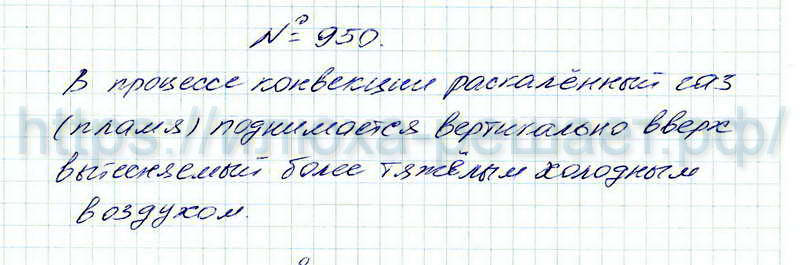 № 950.
В процессе конвекции раскалённый газ
(пламя) поднимается вертикально вверх
вытесняемый более тяжёлым холодным
воздухом.